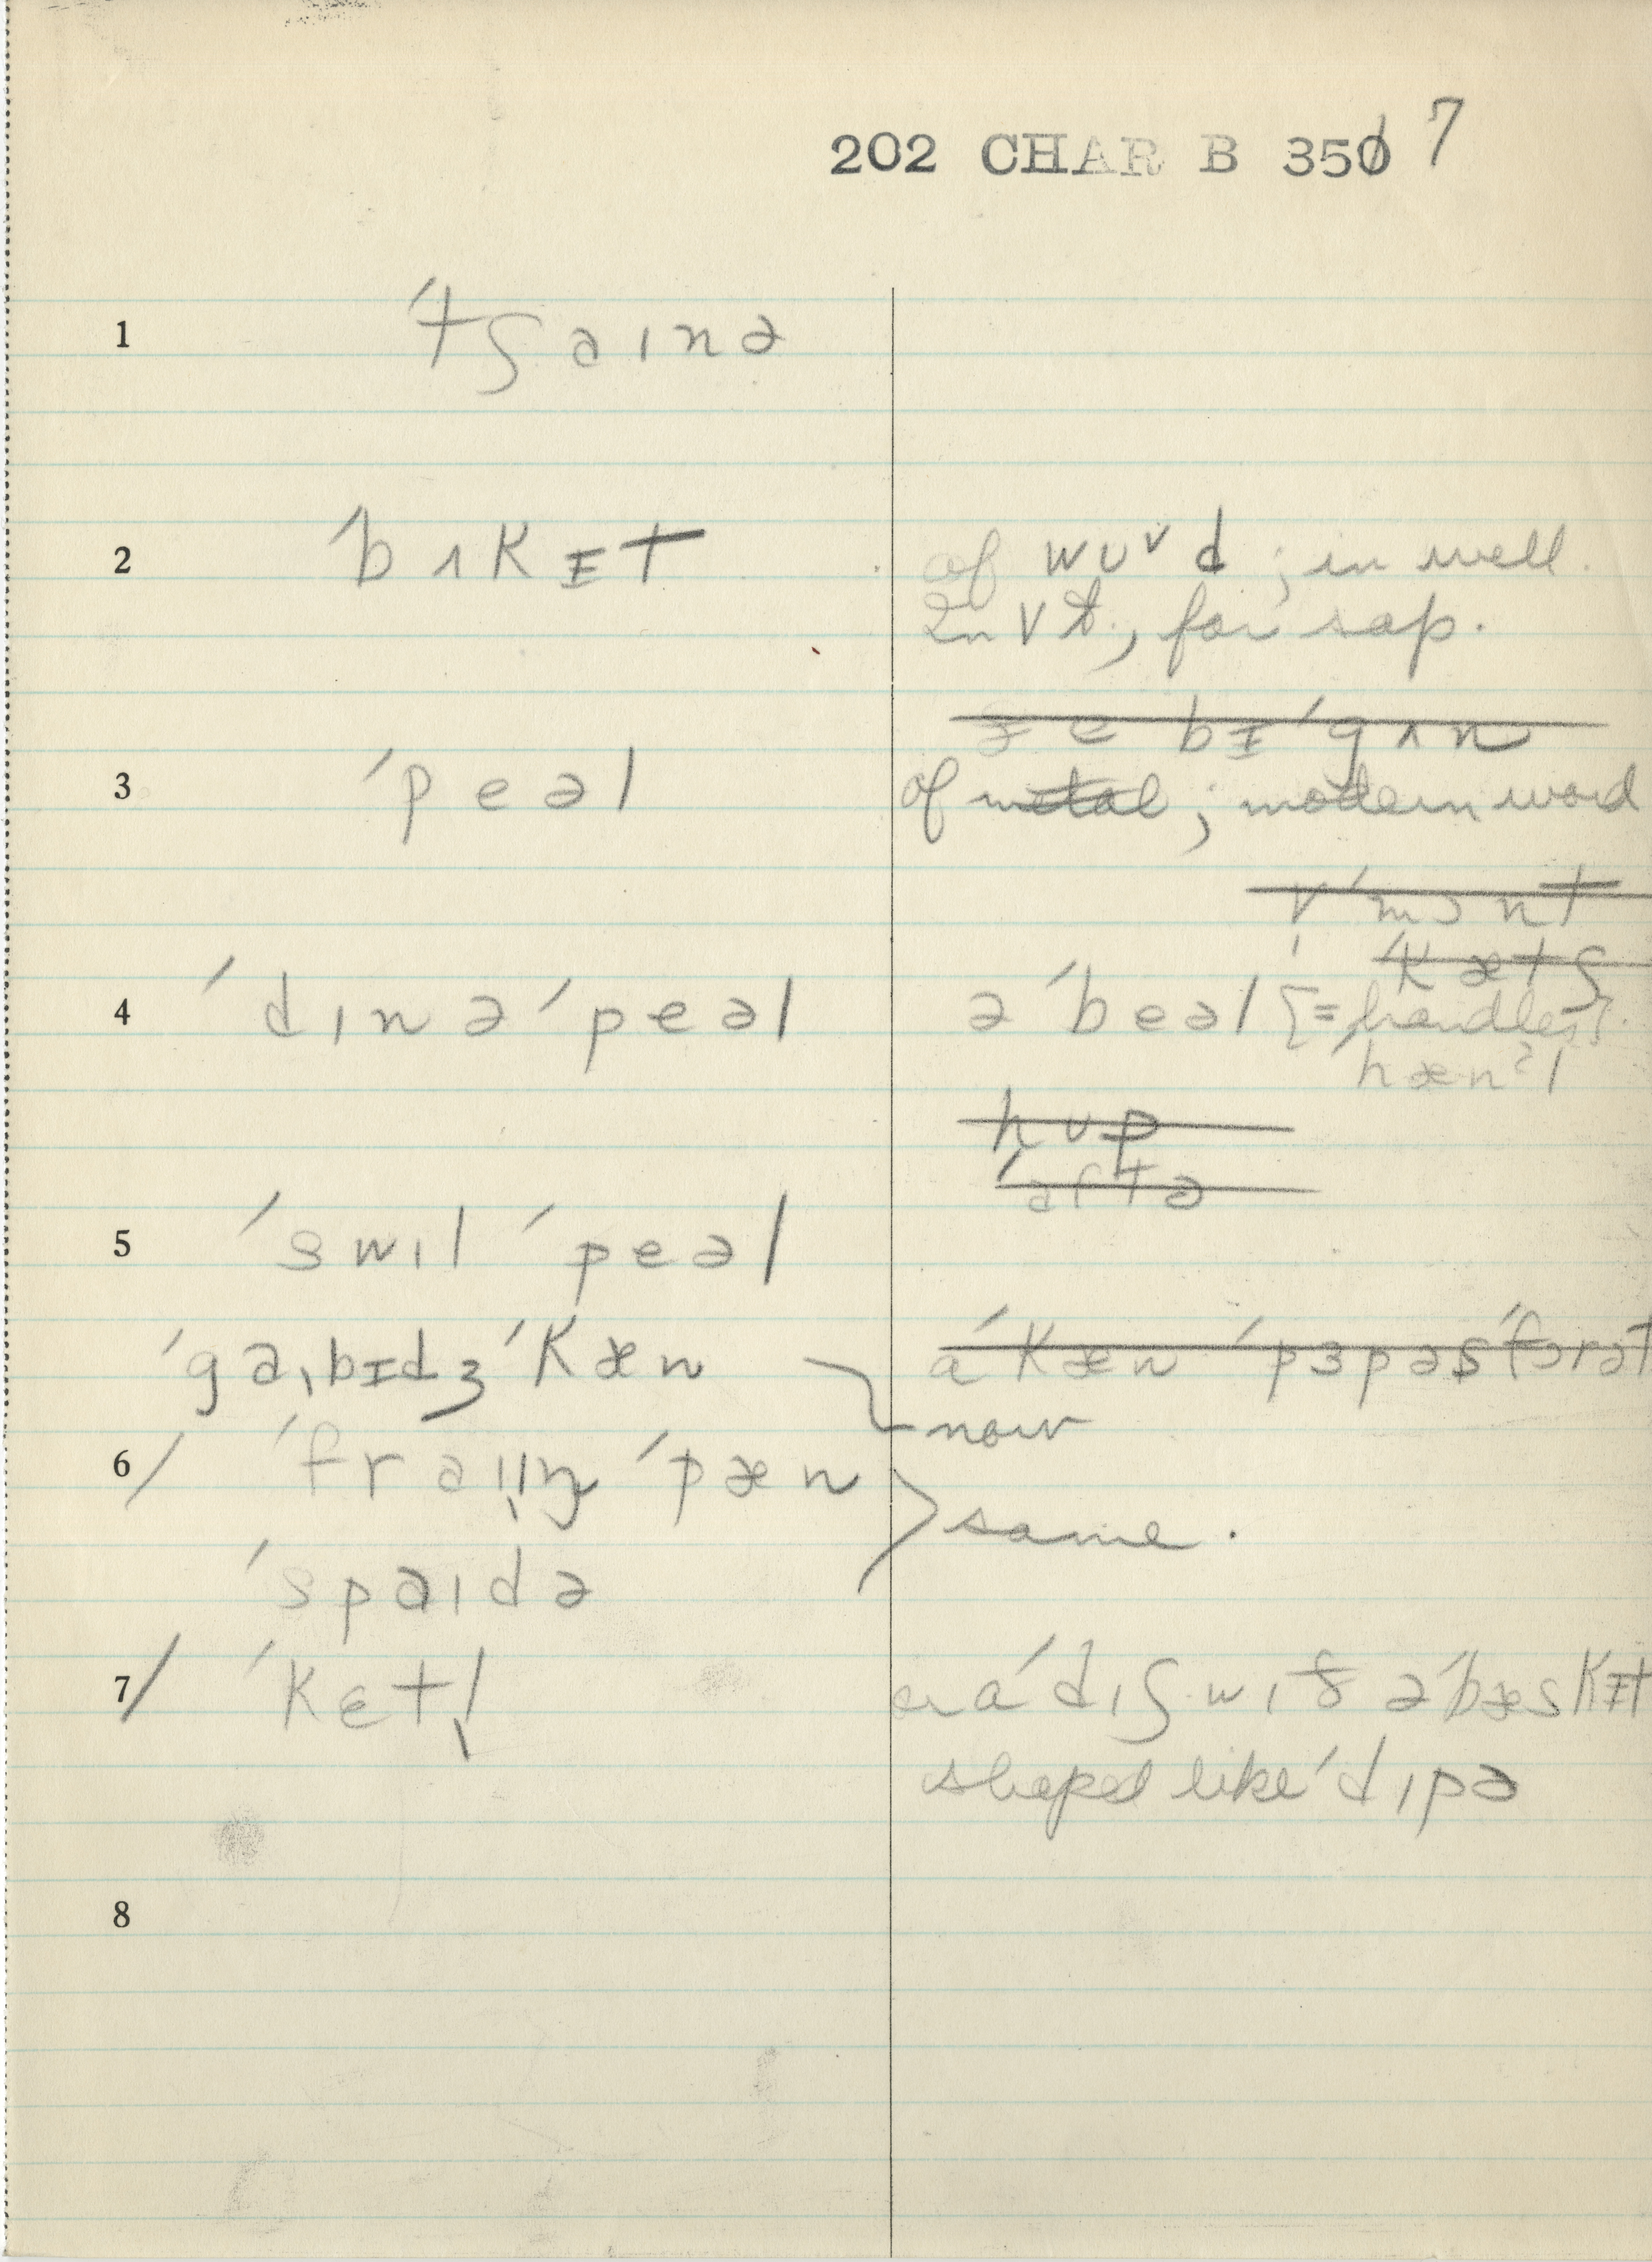 202 CHAR B 350 7
1 ˈtʃaɪnə
2 ˈbʌkɪt of wʊᵛd ; in well.
In Vt., for sap.
ðe bɪˈgʌn
3 ˈpeəl of metal ; modern word
ˈkætʃ
4 ˈdɪnəˈpeəl əˈbeəl [= handles].
ˈhænᵊl
hʊp
ˈaftə
5 ˈswɪlˈpeəl
ˈgaɪbɪdʒˈkæn aˈkæn ˈpɜpəsˈfɔrət
now
6/ ˈfraɪɪŋˈpæn
same.
ˈspaɪdə
7/ ˈketl̩ aˈdɪʃ wɪð əˈbæskɪt
shaped like ˈdɪpə
8